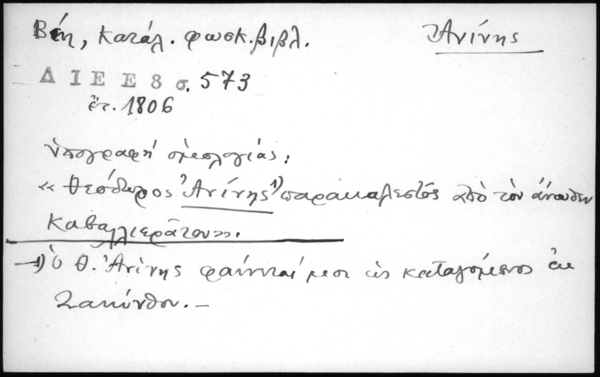 Βέη, Κατάλ. φωσκ. βιβλ. Ἀνίνης
ΔΙΕΕ 8 σ. 573
ἔτ. 1806
ὑπογραφή ὁμολογίας:
« Θεόδωρος Ἀνίνης 1) παρακαλεστός ἀπὸ τὸν ἄνωθεν
Καβαλλιεράτον».
1) ὁ Θ. Ἀνίνης φαίνεταί μοι ὡς καταγόμενος ἐκ
Ζακύνθου. –